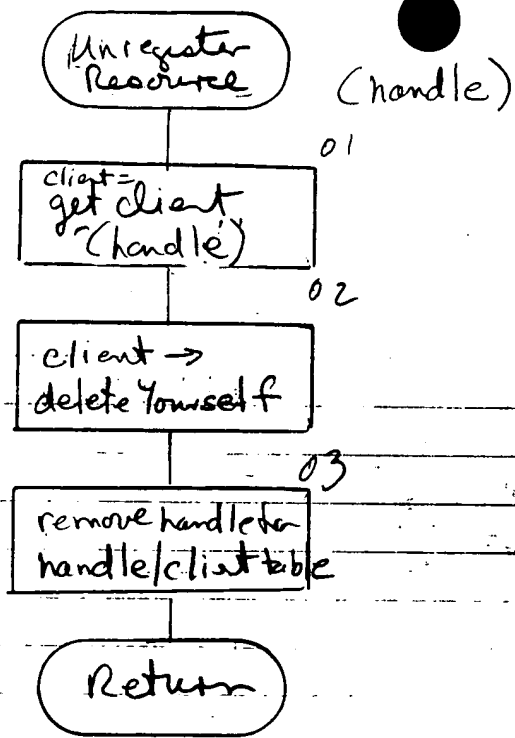 Unregister
Resource
(handle)
01
client =
get client
(handle)
02
client →
delete Yourself
03
remove handle for
handle/client table
Return